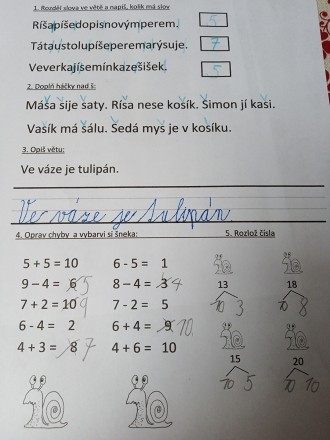 1. Rozděl slova ve větě a napiš, kolik má slov
Ríšapíšedopisnovýmperem. 5
Tátaustolupíšeperemarýsuje. 7
Veverkajísemínkazešišek. 5
2. Doplň háčky nad š:
Máša šije šaty. Ríša nese košík. Šimon jí kaši.
Vašík má šálu. Šedá myš je v košíku.
3. Opiš větu:
Ve váze je tulipán.
Ve váze je tulipán.
4. Oprav chyby a vybarvi si šneka:
5 + 5 = 10 6 - 5 = 1
9 – 4 = 6 5 8 – 4 = 3 4
7 + 2 = 10 9 7 - 2 = 5
6 - 4 = 2 6 + 4 = 9 10.
4 + 3 = 8 7 4 + 6 = 10
5. Rozlož čísla
13 18
10 3 10 8
15 20
10 5 10 10